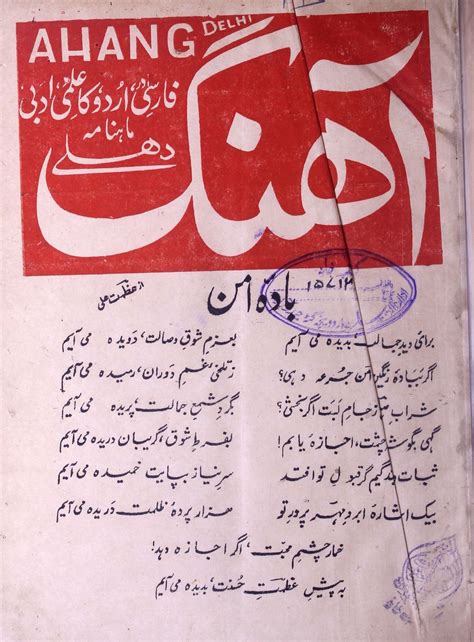 AHANG DELHI
فارسی، اردو کا علمی ادبی
ماہنامہ
دهلے
آهنگ
از عظمت علی
بادۂ امن
۱۵۷۱۲
برای دید جمالت، بدیده می آیم بعزم شوق وصالت، دویده می آیم
اگر ز بادۂ رنگین امن جرعہ دہی؟ ز تلخیِ غمِ دوراں، رمیده می آیم
شراب جامِ لبت اگر بخشی؟ بگردِ شمعِ جمالت، پریده می آیم
گہی بگوشۂ چشمت، اجازه یابم! بفرطِ شوق، گریباں دریده می آیم
ثبات بندگیم گر قبولِ تو افتد سرِ نیاز بپایت خمیده می آیم
بیک اشارهٔ ابرو مہر پرورِ تو هزار پردهٔ ظلمت دریده می آیم
خمارِ چشمِ محبت، اگر اجازه دہد!
بہ پیشِ عظمتِ حسنت، بدیده می آیم